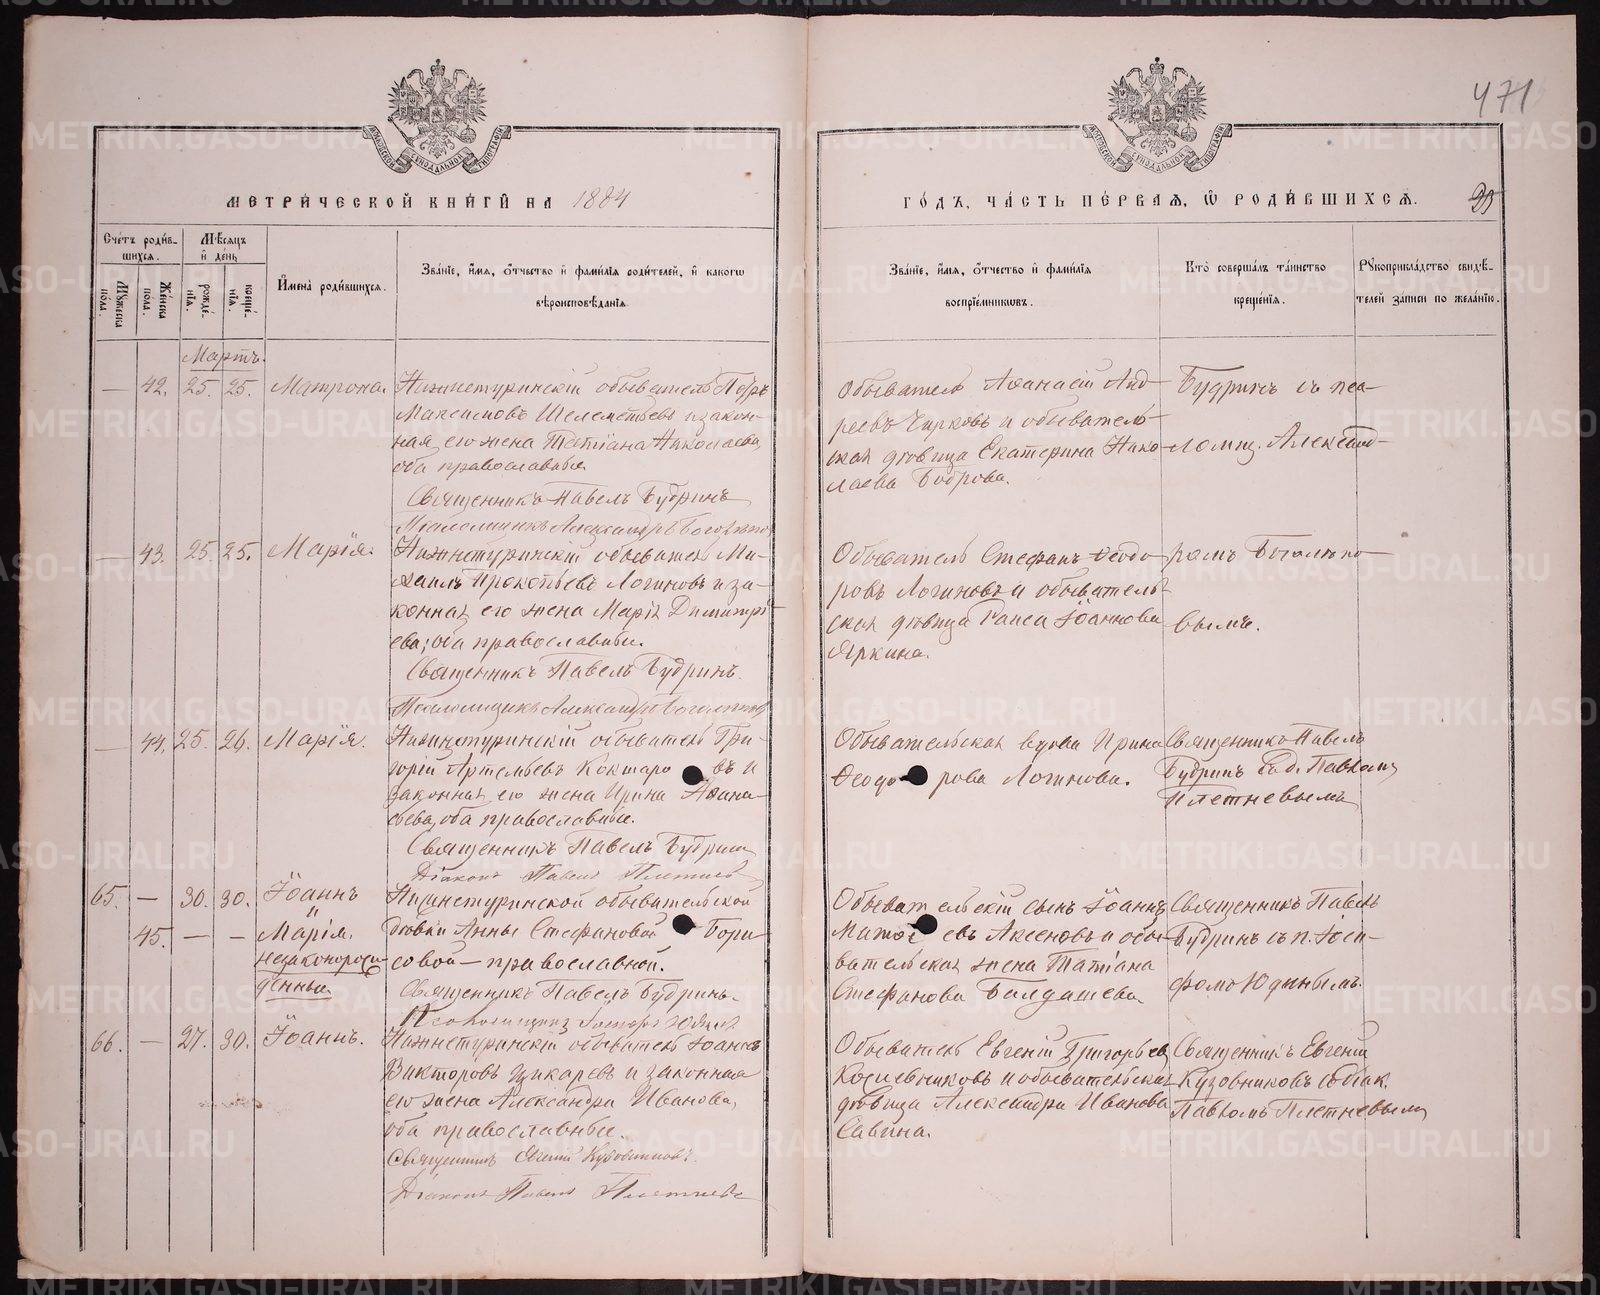 471
МЕТРИЧЕСКОЙ КНИГИ НА 1884
ГОДЪ, ЧАСТЬ ПЕРВАЯ, Ѡ РОДИВШИХСЯ.
Счетъ родив-
шихся.
Мѣсяцъ
и день
Мужеска
пола.
Женска
пола.
рожде-
нія.
креще-
нія.
Имена родившихся.
Званіе, имя, отчество и фамилія родителей, и какогѡ
вѣроисповѣданія.
Званіе, имя, отчество и фамилія
воспріемниковъ.
Кто совершалъ таинство
крещенія.
Рукоприкладство свидѣ-
телей записи по желанію.
Мартъ.
— 42. 25. 25. Матрона.
Нижнетуринскій обыватель Петръ
Максимовъ Шелементьевъ и закон-
ная его жена Татіана Николаева,
оба православные
Священникъ Павелъ Будринъ
Псаломщикъ Александръ Боголѣповъ
Обыватель Аѳанасій Анд-
реевъ Чирковъ и обыватель-
ская дѣвица Екатерина Нико-
лаева Боброва.
Будринъ съ пса-
ломщ. Александ-
— 43. 25. 25. Марія.
Нижнетуринскій обыватель Ми-
хаилъ Прокопьевъ Логиновъ и за-
конная его жена Марія Димитрі-
ева; оба православные.
Священникъ Павелъ Будринъ.
Псаломщикъ Александръ Боголѣповъ
Обыватель Стефанъ Ѳеодо-
ровъ Логиновъ и обыватель-
ская дѣвица Раиса Іоаннова
Яркина.
ромъ Боголѣпо-
вымъ.
— 44. 25. 26. Марія.
Нижнетуринскій обыватель Гри-
горій Артемьевъ Кокшаровъ и
законная его жена Ирина Аѳана-
сьева, оба православные.
Священникъ Павелъ Будринъ
Діаконъ Павелъ Плетневъ
Обывательская вдова Ирина
Ѳеодорова Логинова.
Священникъ Павелъ
Будринъ съ д. Павломъ
Плетневымъ
65. — 30. 30. Іоаннъ
и
45. — — Марія.
незаконорож-
денные.
Нижнетуринской обывательской
дѣвки Анны Стефановой Бори-
совой — православной.
Священникъ Павелъ Будринъ.
Псаломщикъ Іосифъ Юдинъ
Обывательскій сынъ Іоаннъ
Матѳеевъ Аксеновъ и обы-
вательская жена Татіана
Стефанова Балдашева
Священникъ Павелъ
Будринъ съ п. Іоси-
фомъ Юдинымъ.
66. — 27. 30. Іоаннъ.
Нижнетуринскій обыватель Іоаннъ
Викторовъ Цикаревъ и законная
его жена Александра Иванова,
оба православные.
Священникъ Евгеній Кузовниковъ.
Діаконъ Павелъ Плетневъ
Обыватель Евгеній Григорьевъ
Кожевниковъ и обывательская
дѣвица Александра Иванова
Савина.
Священникъ Евгеній
Кузовниковъ съ діак.
Павломъ Плетневымъ
METRIKI.GASO-URAL.RU